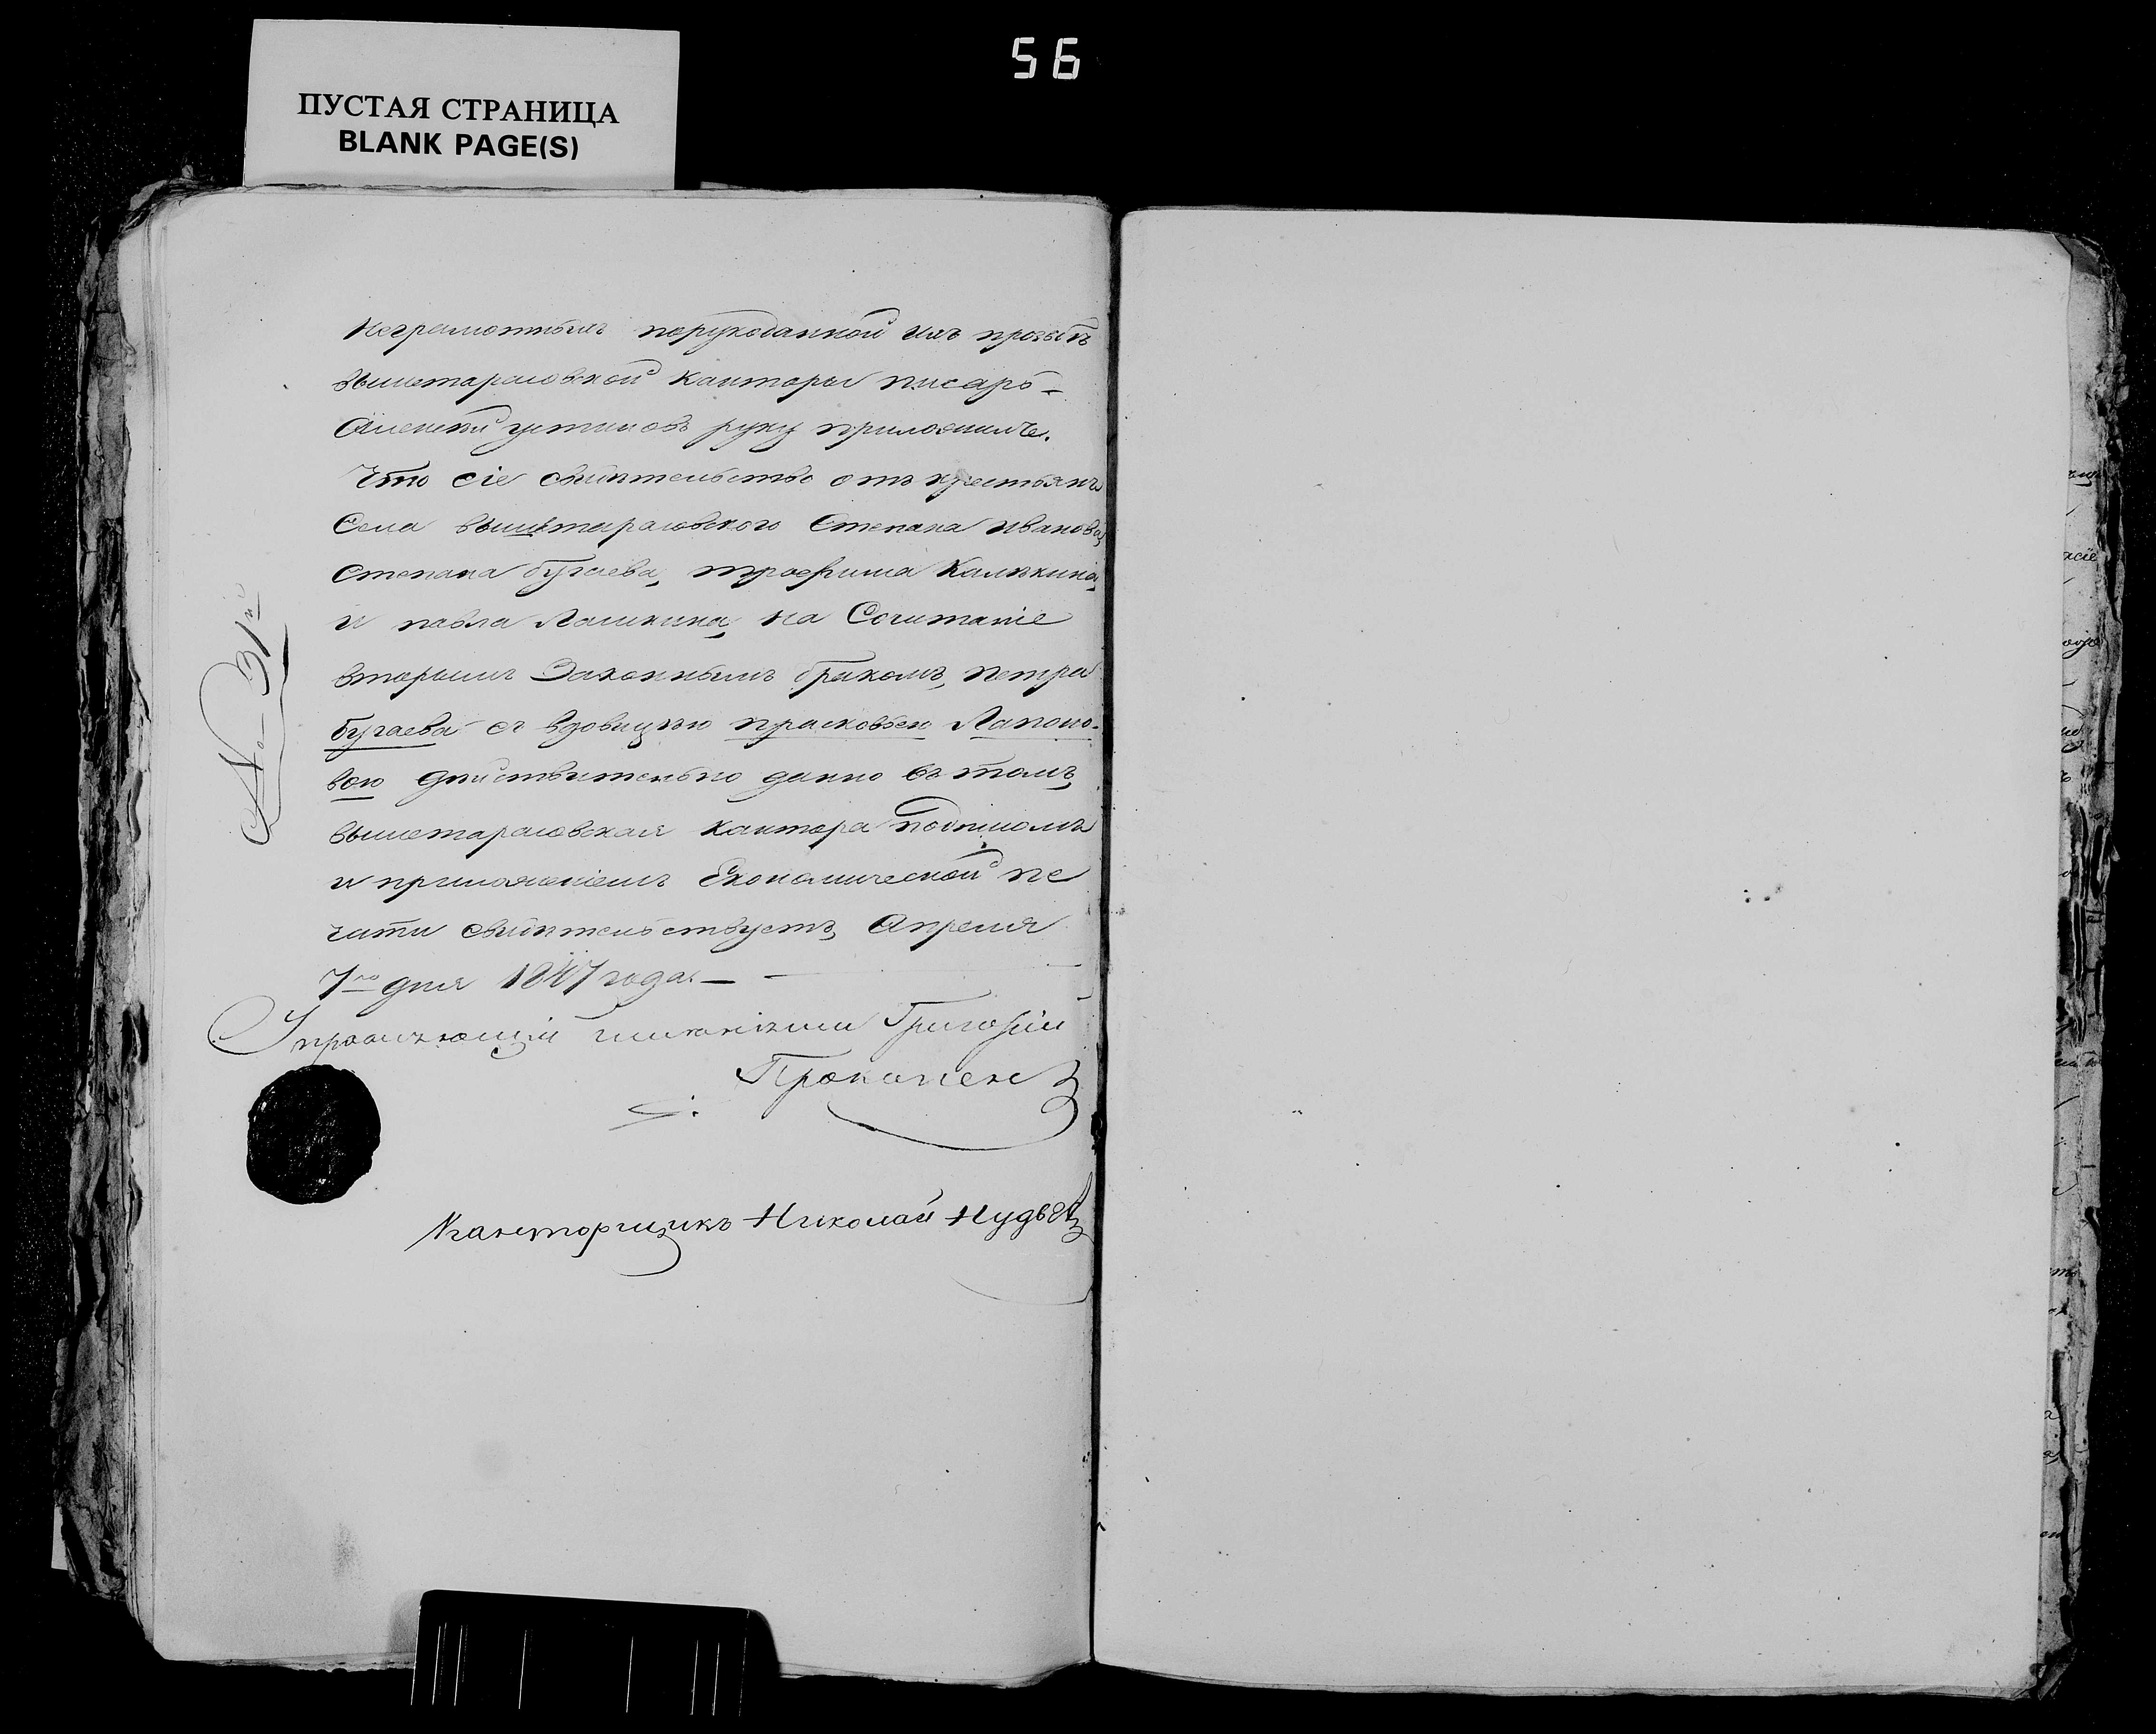 56
ПУСТАЯ СТРАНИЦА
BLANK PAGE(S)
неграмотныхъ порукоданной ихъ прозьбѣ
вышетарасовской канторы писарь
Алексѣй устиновъ руку приложилъ.
Что сіе свидѣтельство отъ крестьянъ
Села вышетарасовского Степана иванова,
Степана бугаева, трофима
и павла Лашкина, на Сочитаніе
вторымъ Законнымъ бракомъ, петра
бугаева съ вдовицѣю прасковьею Лапоно-
вою дѣйствительно данно въ томъ,
вышетарасовская кантора подписомъ
и приложеніемъ Економической пе
чати свидѣтельствуетъ, Апреля
7го дня 1847 года. —
Управляющій имѣніями Григорій
Канторщикъ Николай
№ 31й